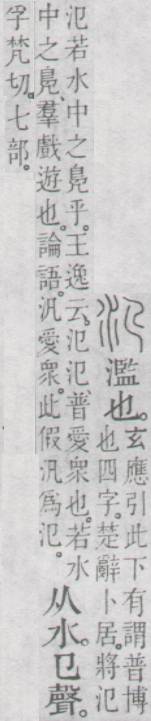 氾濫也。
玄應引此下有謂普博
也四字。楚辭卜居。將氾
氾若水中之鳧乎。王逸云。氾氾普愛衆也。若水
中之鳧、羣戲遊也。論語。汎愛衆。此假汎爲氾。
从水㔾聲。
孚梵切。七部。